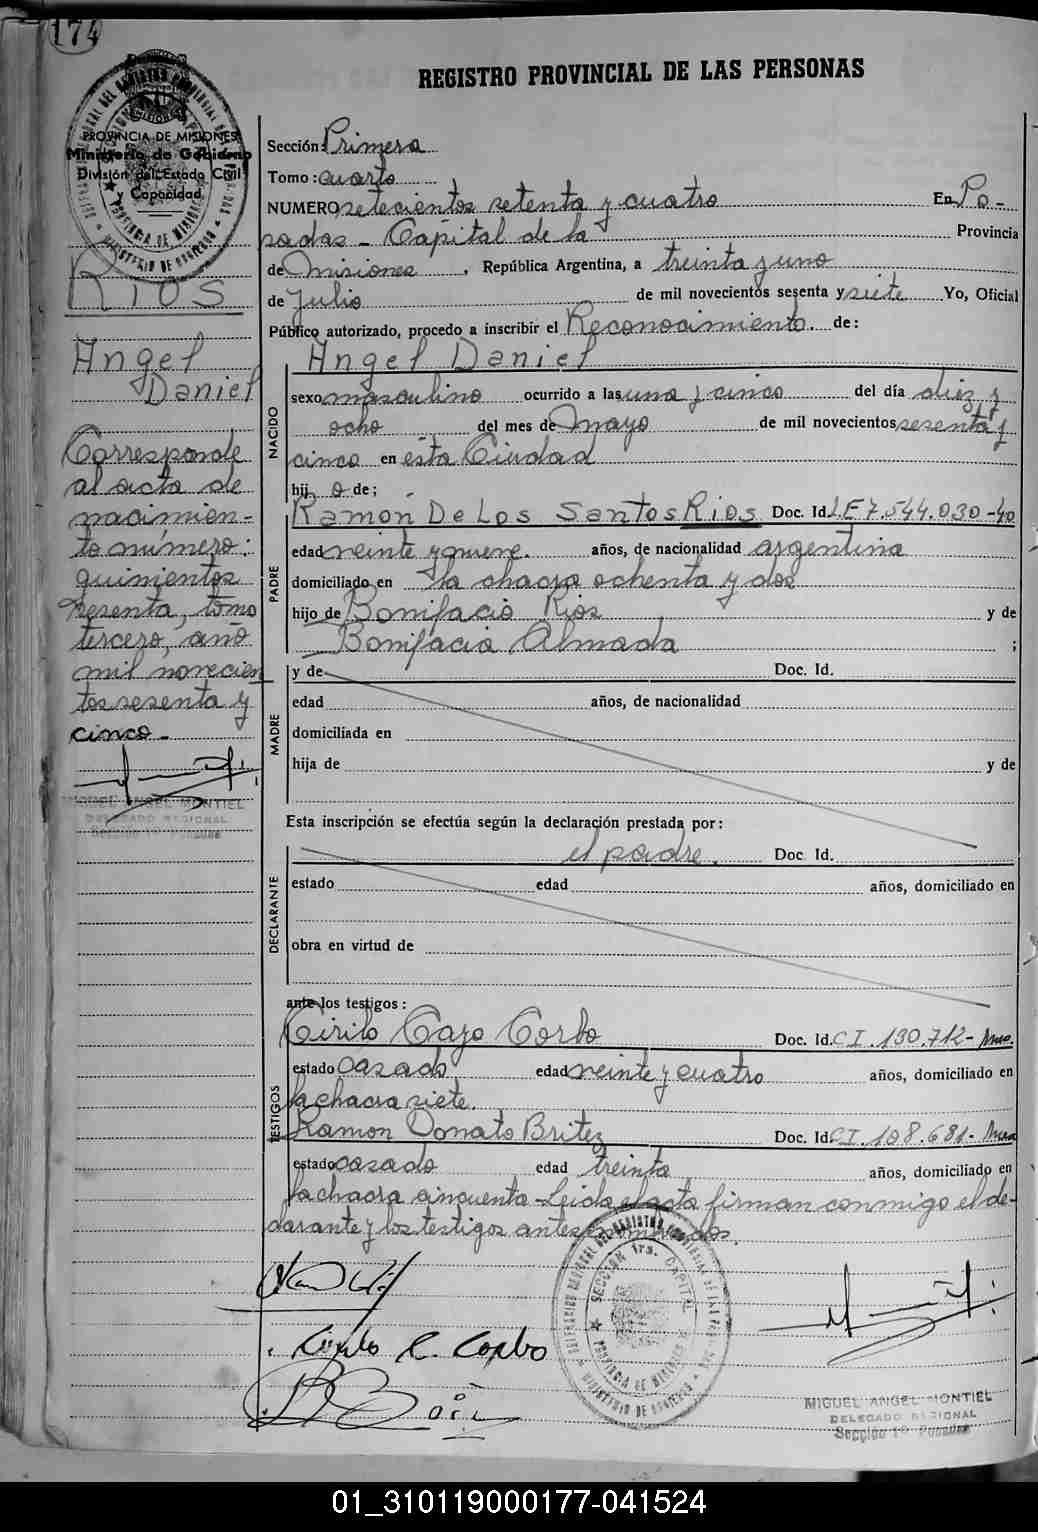 174
REGISTRO PROVINCIAL DE LAS PERSONAS
PROVINCIA DE MISIONES
Ministerio de Gobierno
División del Estado Civil
y Capacidad
Rios
Angel
Daniel
Corresponde
al acta de
nacimien-
to número:
quinientos
sesenta, tomo
tercero, año
mil novecien
tos sesenta y
cinco.-
MIGUEL ANGEL MONTIEL
DELEGADO REGIONAL
Sección 1º Posadas
Sección: Primera
Tomo: cuarto
NUMERO setecientos setenta y cuatro En Po-
sadas - Capital de la Provincia
de Misiones, República Argentina, a treinta y uno
de Julio de mil novecientos sesenta y siete Yo, Oficial
Público autorizado, procedo a inscribir el Reconocimiento. de:
Angel Daniel
NACIDO
sexo masculino ocurrido a las una y cinco del día diez y
ocho del mes de Mayo de mil novecientos sesenta y
cinco en ésta Ciudad
hij o de;
Ramón De Los Santos Rios Doc. Id. L.E 7.544.030-40
PADRE
edad veinte y nueve. años, de nacionalidad argentina
domiciliado en la chacra ochenta y dos
hijo de Bonifacio Rios y de
Bonifacia Almada ;
y de Doc. Id.
MADRE
edad años, de nacionalidad
domiciliada en
hija de y de
Esta inscripción se efectúa según la declaración prestada por:
el padre. Doc. Id.
DECLARANTE
estado edad años, domiciliado en
obra en virtud de
ante los testigos:
Cirilo Corbo Doc. Id. C I. 130.712-
TESTIGOS
estado casado edad veinte y cuatro años, domiciliado en
la chacra siete.
Ramon Donato Britez Doc. Id. C I. 108.681-
estado casado edad treinta años, domiciliado en
la chacra cincuenta - Leída el acta firman conmigo el de-
clarante y los testigos antes
Cirilo C. Corbo
SECCION 1ra. CAPITAL
PROVINCIA DE MISIONES
MIGUEL ANGEL MONTIEL
DELEGADO REGIONAL
Sección 1º Posadas
01_310119000177-041524